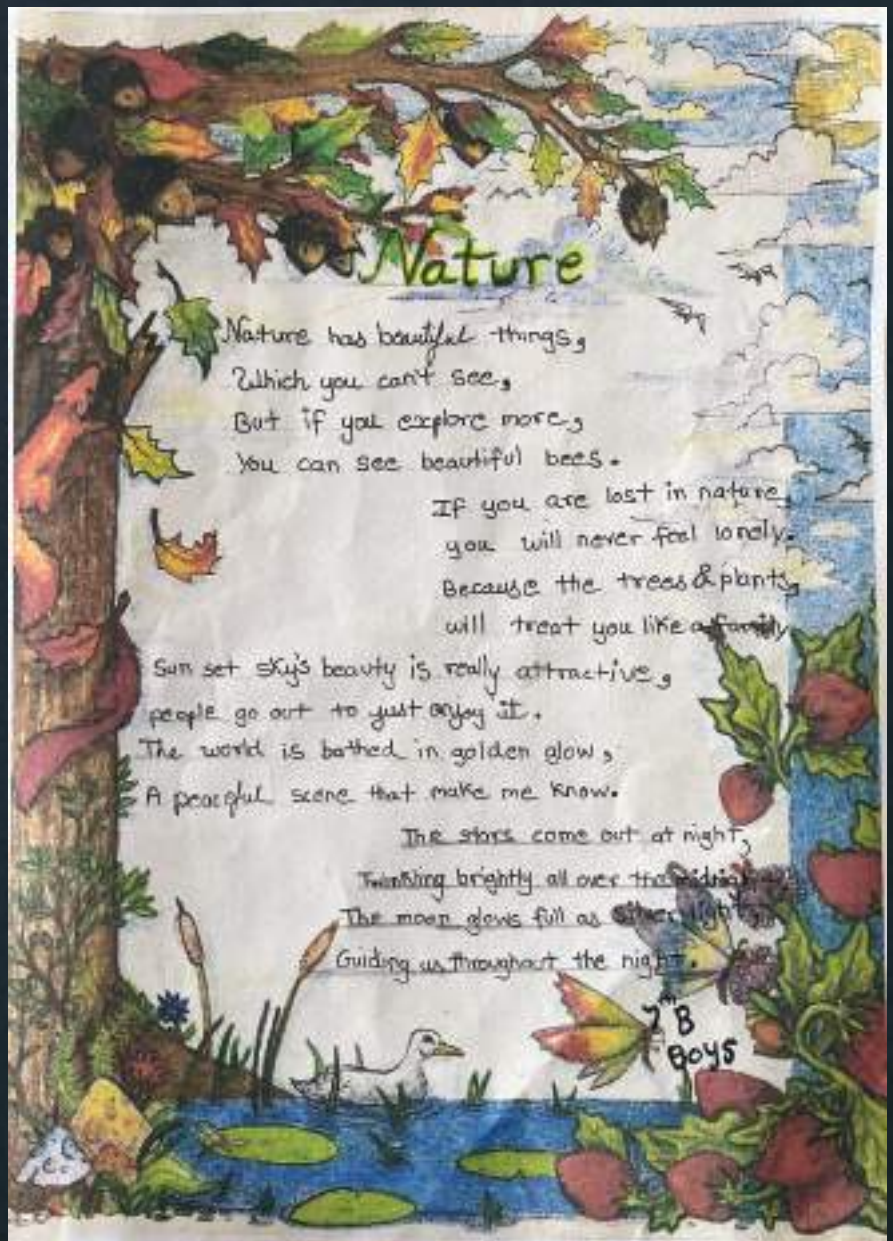 Nature
Nature has beautiful things,
Which you can't see,
But if you explore more,
You can see beautiful bees.
If you are lost in nature,
you will never feel lonely.
Because the trees & plants,
will treat you like a family
Sun set sky's beauty is really attractive,
people go out to just enjoy it.
The world is bathed in golden glow,
A peaceful scene that make me know.
The stars come out at night,
Twinkling brightly all over the midnight
The moon glows full as silver light,
Guiding us throughout the night.
7th B
Boys